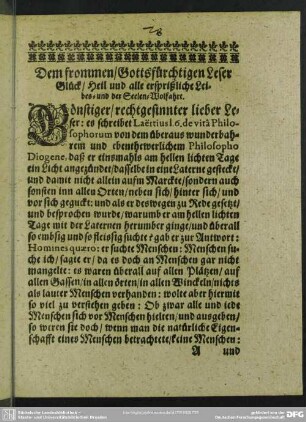 Dem frommen/Gottsfürchtigen Leser
Glück/ Heil und alle ersprißliche Lei-
bes- und der Seelen/Wolfahrt.
Gönstiger/rechtgesinnter lieber Le-
ser: es schreibet Laërtius l. 6. de vitâ Philo-
sophorum von dem überaus wunderbah-
rem und ebenthewerlichem Philosopho
Diogene, daß er einsmahls am hellen lichten Tage
ein Licht angezündet/dasselb in eine Laterne gesteckt/
und damit nicht allein aufm Marckte/sondern auch
sonsten inn allen Orten/neben sich/ hinter sich/ und
vor sich geguckt: und als er deswegen zu Rede gesetzt/
und besprochen wurde/warumb er am hellen lichten
Tage mit der Laternen herumber ginge/und überall
so embsig und so fleissig suchte? gab er zur Antwort:
Homines quæro: er suchte Menschen: Menschen su-
che ich/ sagte er/ da es doch an Menschen gar nicht
mangelte: es waren überall auf allen Plätzen/ auf
allen Gassen/in allen örten/in allen Winckeln/nichts
als lauter Menschen verhanden: wolte aber hiermit
so viel zu verstehen geben: Ob zwar alle und iede
Menschen sich vor Menschen hielten/ und ausgeben/
so weren sie doch/ wenn man die natürliche Eigen-
schafft eines Menschen betrachtete/keine Menschen:
A und